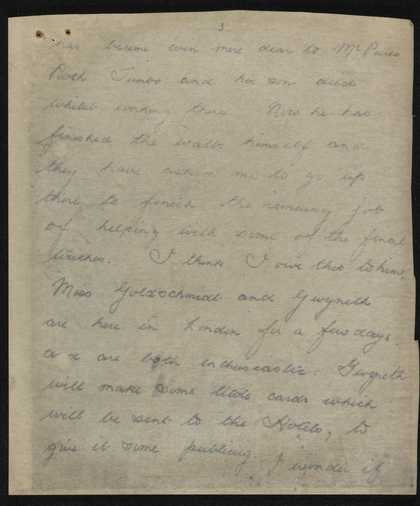 3
has become even more dear to Mr
Both and his son died
whilst working there. Now he has
finished the walls himself and
they have asked me to go up
there to finish the remaining job
of helping with some of the final
touches. I think I owe this to him.
Miss Goldschmidt and Gwyneth
are here in London for a few days.
are both enthusiastic. Gwyneth
will make some little cards which
will be sent to the Hotels, to
give it some publicity. I wonder if